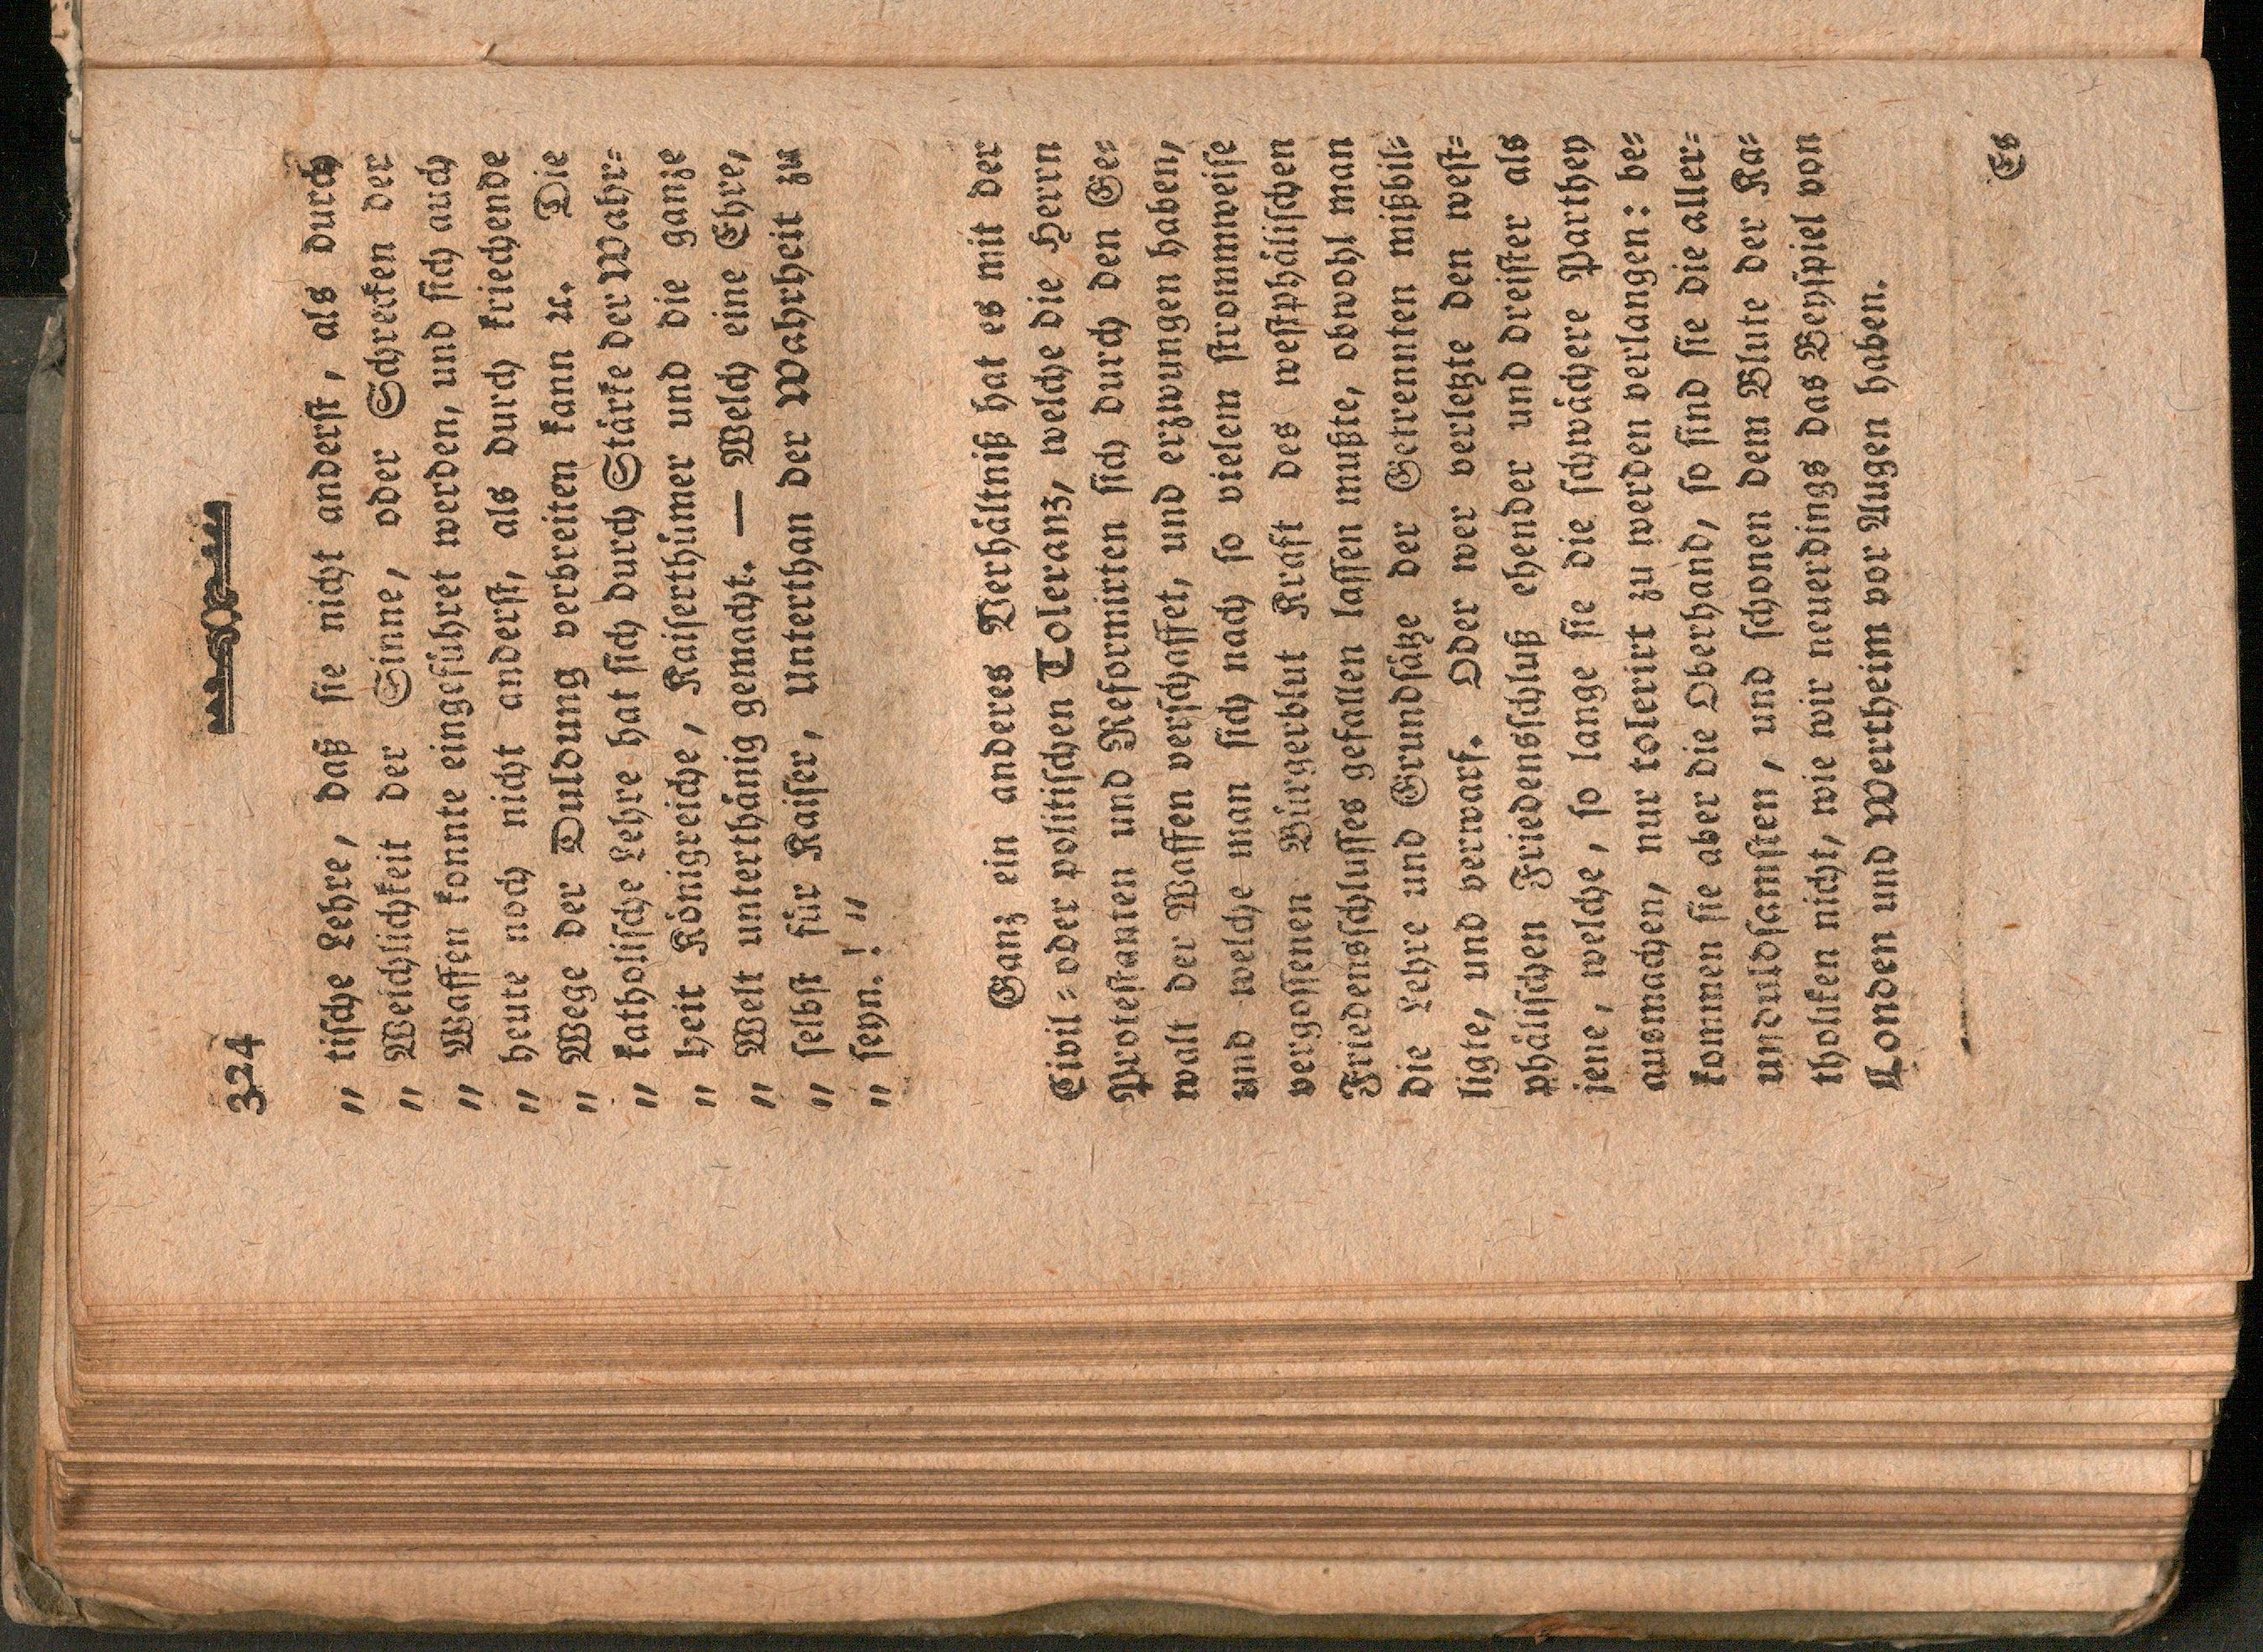 324
„ tiſche Lehre, daß ſie nicht anderſt, als durch
„ Weichlichkeit der Sinne, oder Schrecken der
„ Waffen konnte eingeführet werden, und ſich auch
„ heute noch nicht anderſt, als durch kriechende
„ Wege der Duldung verbreiten kann ꝛc. Die
„ katholiſche Lehre hat ſich durch Stärke der Wahr⸗
„ heit Königreiche, Kaiſerthümer und die ganze
„ Welt unterthänig gemacht. — Welch eine Ehre,
„ ſelbſt für Kaiſer, Unterthan der Wahrheit zu
„ ſeyn.! „
Ganz ein anderes Verhältniß hat es mit der
Civil⸗ oder politiſchen Toleranz, welche die Herrn
Proteſtanten und Reformirten ſich durch den Ge⸗
walt der Waffen verſchaffet, und erzwungen haben,
und welche man ſich nach ſo vielem ſtrommweiſe
vergoſſenen Bürgerblut Kraft des weſtphäliſchen
Friedensſchluſſes gefallen laſſen mußte, obwohl man
die Lehre und Grundſätze der Getrennten mißbil⸗
ligte, und verwarf. Oder wer verletzte den weſt⸗
phäliſchen Friedensſchluß ehender und dreiſter als
jene, welche, ſo lange ſie die ſchwächere Parthey
ausmachen, nur tolerirt zu werden verlangen: be⸗
kommen ſie aber die Oberhand, ſo ſind ſie die aller⸗
unduldſamſten, und ſchonen dem Blute der Ka⸗
tholiken nicht, wie wir neuerdings das Beyſpiel von
London und Wertheim vor Augen haben.
Es